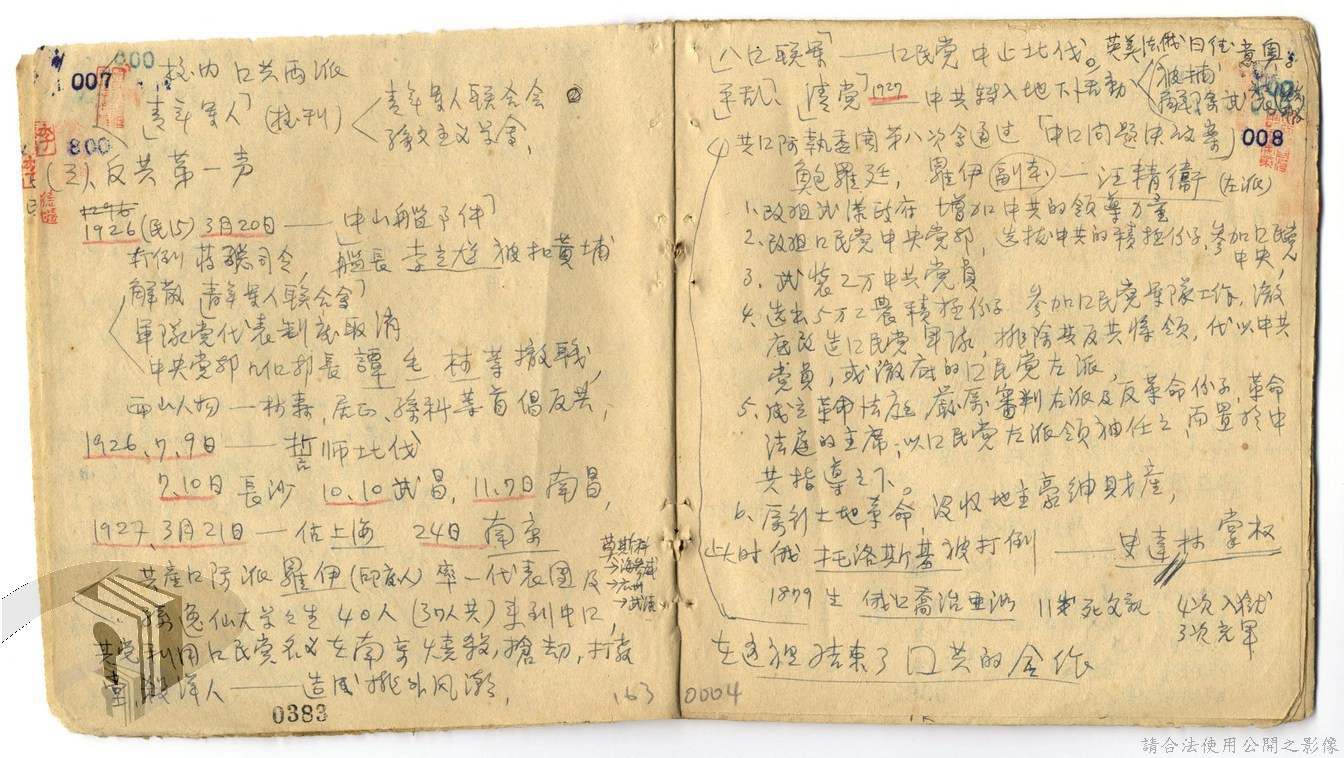 007
000
800
校内 口共两派
「青年軍人」(校刊)
青年軍人联合会
孫文主义学会,
(三)、反共第一声
1926 (民15) 3月20日 ——「中山艦事件」
打倒 蒋總司令, 艦長 李之龙 被扣黃埔
解散「青年軍人联合會」
軍隊党代表制底取消
中央党部 部長 譚 毛 林 等 撤職,
西山人物 — 林森, 居正、孫科 等首倡反共,
1926, 7, 9日 —— 誓师北伐
7, 10日 長沙 10, 10 武昌, 11, 7日 南昌,
1927, 3月21日 — 佔上海 24日 南京
莫斯科
→海参威
→広州
→武漢
共產口际派 羅伊 (印度人) 率一代表團及
孫逸仙大学之生 40人 (37人共) 来到中口,
共党利用口民党名义在南京燒殺, 搶劫, 打教
堂, 殺洋人 —— 造成排外风潮,
0383
163
008
八口联軍 —— 口民党中止北伐。英美法俄日德意奥。
「清党」1927 —— 中共轉入地下活動
共口际執委团第八次會通过「中口问题决议案」
鮑羅廷, 羅伊 (副本) — 汪精衛 (左派)
1、改组武漢政府 增加中共的领導力量
2、改组口民党中央党部, 选拔中共的積极份子, 参加口民党
中央,
3、武裝2万中共党員
4、选出5万工農積極份子 参加口民党軍隊工作, 澈
底改造口民党軍隊, 排除共反共将领, 代以中共
党員, 或澈底的口民党左派,
5、成立革命法庭 嚴厉審判右派及反革命份子, 革命
法庭的主席; 以口民党左派领袖任之, 而置於中
共指導之下。
6、厲行土地革命, 没收地主豪绅財產,
此时俄 托洛斯基被打倒 —— 史達林 掌权
1879生 俄口喬治亚州 11岁死父親 4次入獄
3次充軍
在這裡结束了口共的合作
0004
請合法使用公開之影像